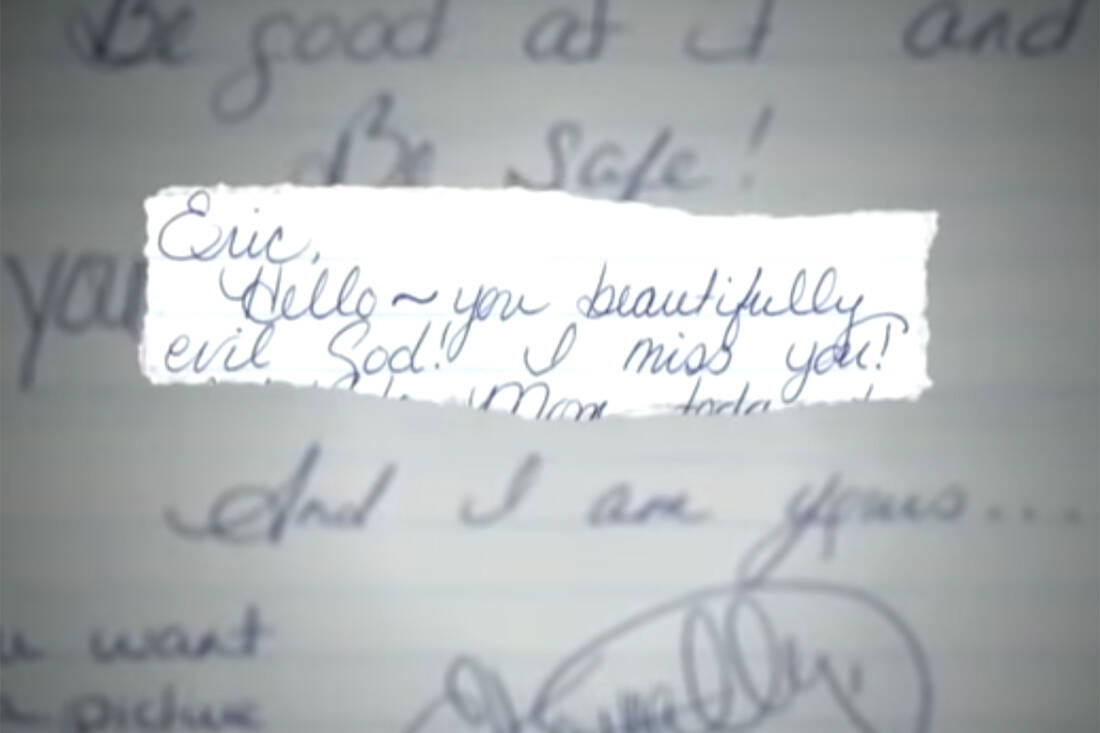 Be good at I and
Be Safe!
Eric,
you
Hello ~ you beautifully
evil God! I miss you!
Mom today
And I am yours...
want
picture